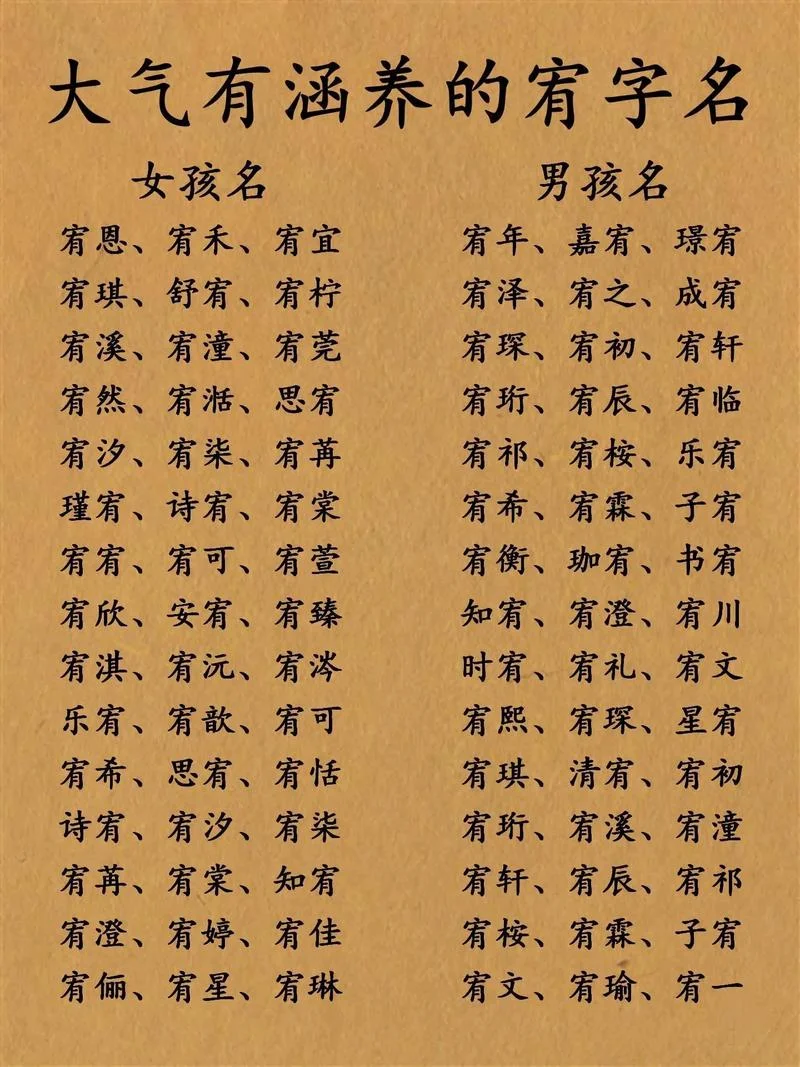 大气有涵养的宥字名
女孩名
宥恩、宥禾、宥宜
宥琪、舒宥、宥柠
宥溪、宥潼、宥莞
宥然、宥湉、思宥
宥汐、宥柒、宥苒
瑾宥、诗宥、宥棠
宥宥、宥可、宥萱
宥欣、安宥、宥臻
宥淇、宥沅、宥涔
乐宥、宥歆、宥可
宥希、思宥、宥恬
诗宥、宥汐、宥柒
宥苒、宥棠、知宥
宥澄、宥婷、宥佳
宥俪、宥星、宥琳
男孩名
宥年、嘉宥、璟宥
宥泽、宥之、成宥
宥琛、宥初、宥轩
宥珩、宥辰、宥临
宥祁、宥桉、乐宥
宥希、宥霖、子宥
宥衡、珈宥、书宥
知宥、宥澄、宥川
时宥、宥礼、宥文
宥熙、宥琛、星宥
宥琪、清宥、宥初
宥珩、宥溪、宥潼
宥轩、宥辰、宥祁
宥桉、宥霖、子宥
宥文、宥瑜、宥一